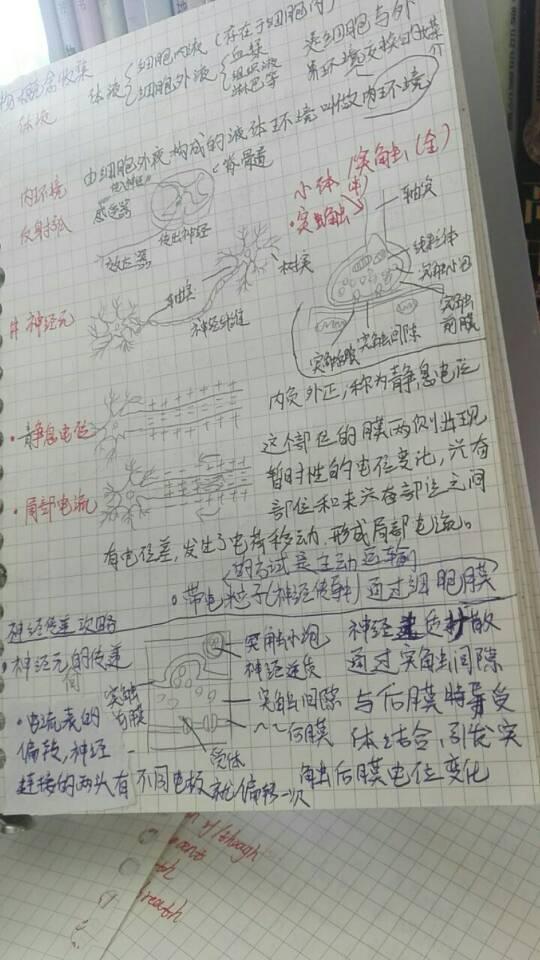 体液
细胞内液（存在于细胞内
细胞外液
血浆
组织液
淋巴等
是细胞与外
界环境交换的媒介
体液
内环境
由细胞外液构成的液体环境叫做内环境
反射弧
感受器
传出神经
脊骨道
效应器
小体
突触（全）
突触
轴突
线粒体
突触小泡
突触前膜
突触后膜
突触间隙
# 神经元
轴突
神经纤维
树突
·静息电位
内负外正，称为静息电位
·局部电流
这个部位的膜两侧出现
暂时性的电位变化，兴奋
部位和未兴奋部位之间
有电位差，发生了电荷移动，形成局部电流。
的方式是主动运输
·带电粒子（神经传导）通过细胞膜
神经传递攻略
·神经元的传递
突触小泡
神经递质
突触间隙
~~后膜
受体
突触前膜
神经递质扩散
通过突触间隙
与后膜特异受
体结合，引发突
触后膜电位变化
·电流表的
偏转，神经
连接的两头有不同电极就偏转一次